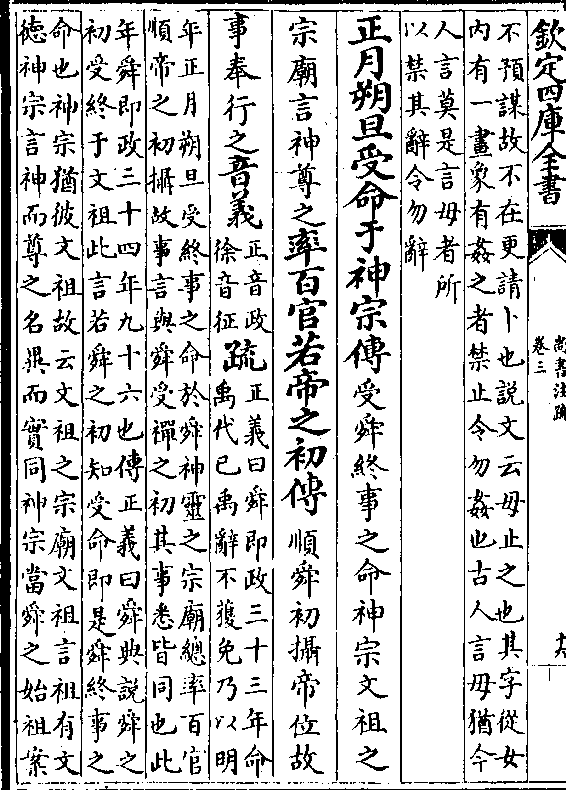 欽定四庫全書
尚書注疏
卷三
十六
不預謀故不在更請卜也説文云毋止之也其字從女
内有一畫象有姦之者禁止令勿姦也古人言毋猶今
人言莫是言毋者所
以禁其辭令勿辭
正月朔旦受命于神宗傳受舜終事之命神宗文祖之
宗廟言神尊之率百官若帝之初傳順舜初攝帝位故
事奉行之音義正音政
徐音征疏正義曰舜即政三十三年命
禹代已禹辭不獲免乃以明
年正月朔旦受終事之命於舜神靈之宗廟總率百官
順帝之初攝故事言與舜受禪之初其事悉皆同也此
年舜即政三十四年九十六也傳正義曰舜典説舜之
初受終于文祖此言若舜之初知受命即是舜終事之
命也神宗猶彼文祖故云文祖之宗廟文祖言祖有文
徳神宗言神而尊之名異而實同神宗當舜之始祖案